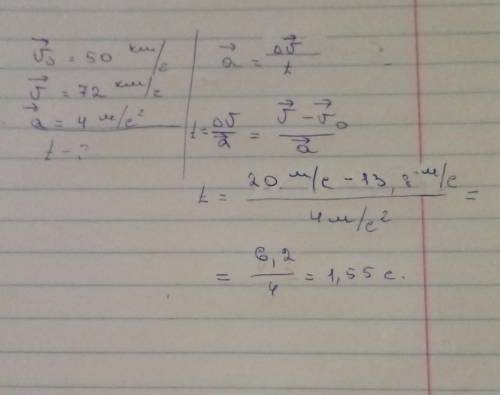 v⃗₀ = 50 км/с
v⃗ = 72 км/с
a⃗ = 4 м/с²
t - ?
a⃗ = Δv⃗/t
t = Δv⃗/a⃗ = (v⃗ - v⃗₀)/a⃗
t = (20 м/с - 13,8 м/с)/(4 м/с²) =
= 6,2/4 = 1,55 с.